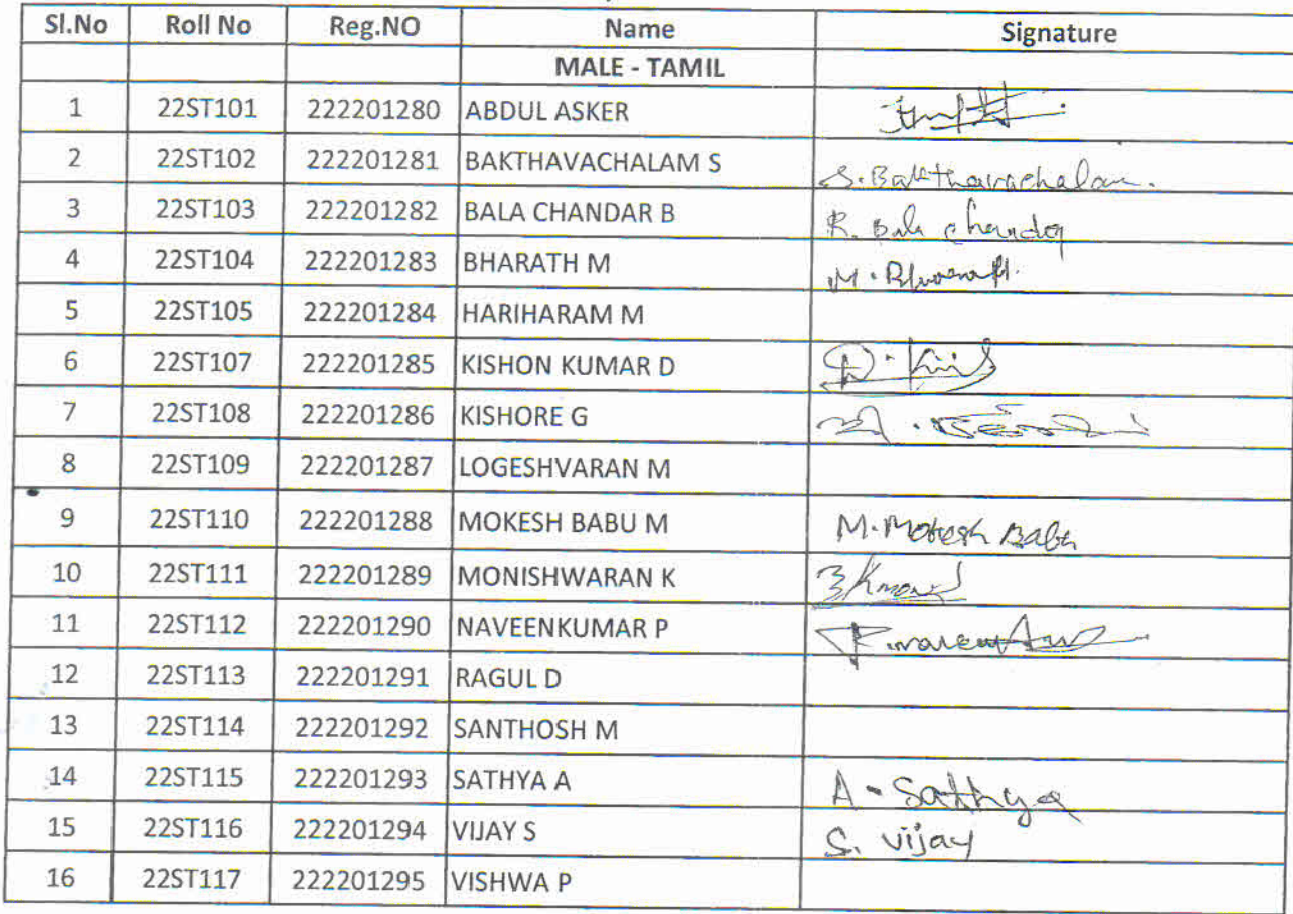 Sl.No Roll No Reg.NO Name Signature
MALE - TAMIL
1 22ST101 222201280 ABDUL ASKER
2 22ST102 222201281 BAKTHAVACHALAM S S. Bakthavachalam.
3 22ST103 222201282 BALA CHANDAR B R. Bala chandar
4 22ST104 222201283 BHARATH M M. Bharath.
5 22ST105 222201284 HARIHARAM M
6 22ST107 222201285 KISHON KUMAR D
7 22ST108 222201286 KISHORE G
8 22ST109 222201287 LOGESHVARAN M
9 22ST110 222201288 MOKESH BABU M M. Mokesh Babu
10 22ST111 222201289 MONISHWARAN K
11 22ST112 222201290 NAVEENKUMAR P
12 22ST113 222201291 RAGUL D
13 22ST114 222201292 SANTHOSH M
14 22ST115 222201293 SATHYA A A - Sathya
15 22ST116 222201294 VIJAY S S. vijay
16 22ST117 222201295 VISHWA P